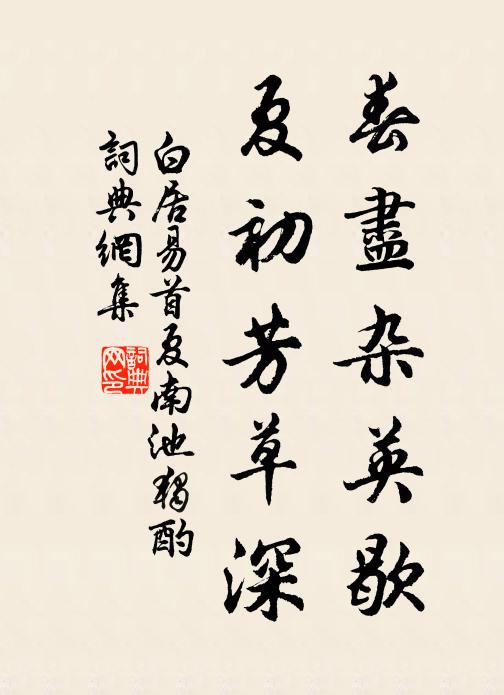 春盡杂英歇
夏初芳草深
白居易首夏南池獨酌
詞典網集
詞典網印